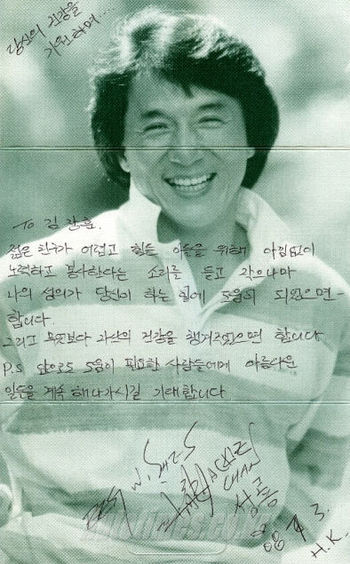 당신의 건강을
기원하며...
To 김찬호
젊은 친구가 어렵고 힘든 이들을 위해 아낌없이
노력하고 봉사한다는 소리를 듣고 작으나마
나의 성의가 당신이 하는 일에 도움이 되었으면-
합니다.
그리고 무엇보다 자신의 건강을 챙겨주었으면 합니다
P.S 앞으로도 도움이 필요한 사람들에게 아름다운
일들을 계속 해나가시길 기대합니다
Best Wishes
성룡
H.K.